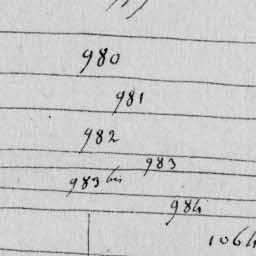 980
981
982
983
983 bis
984
1064